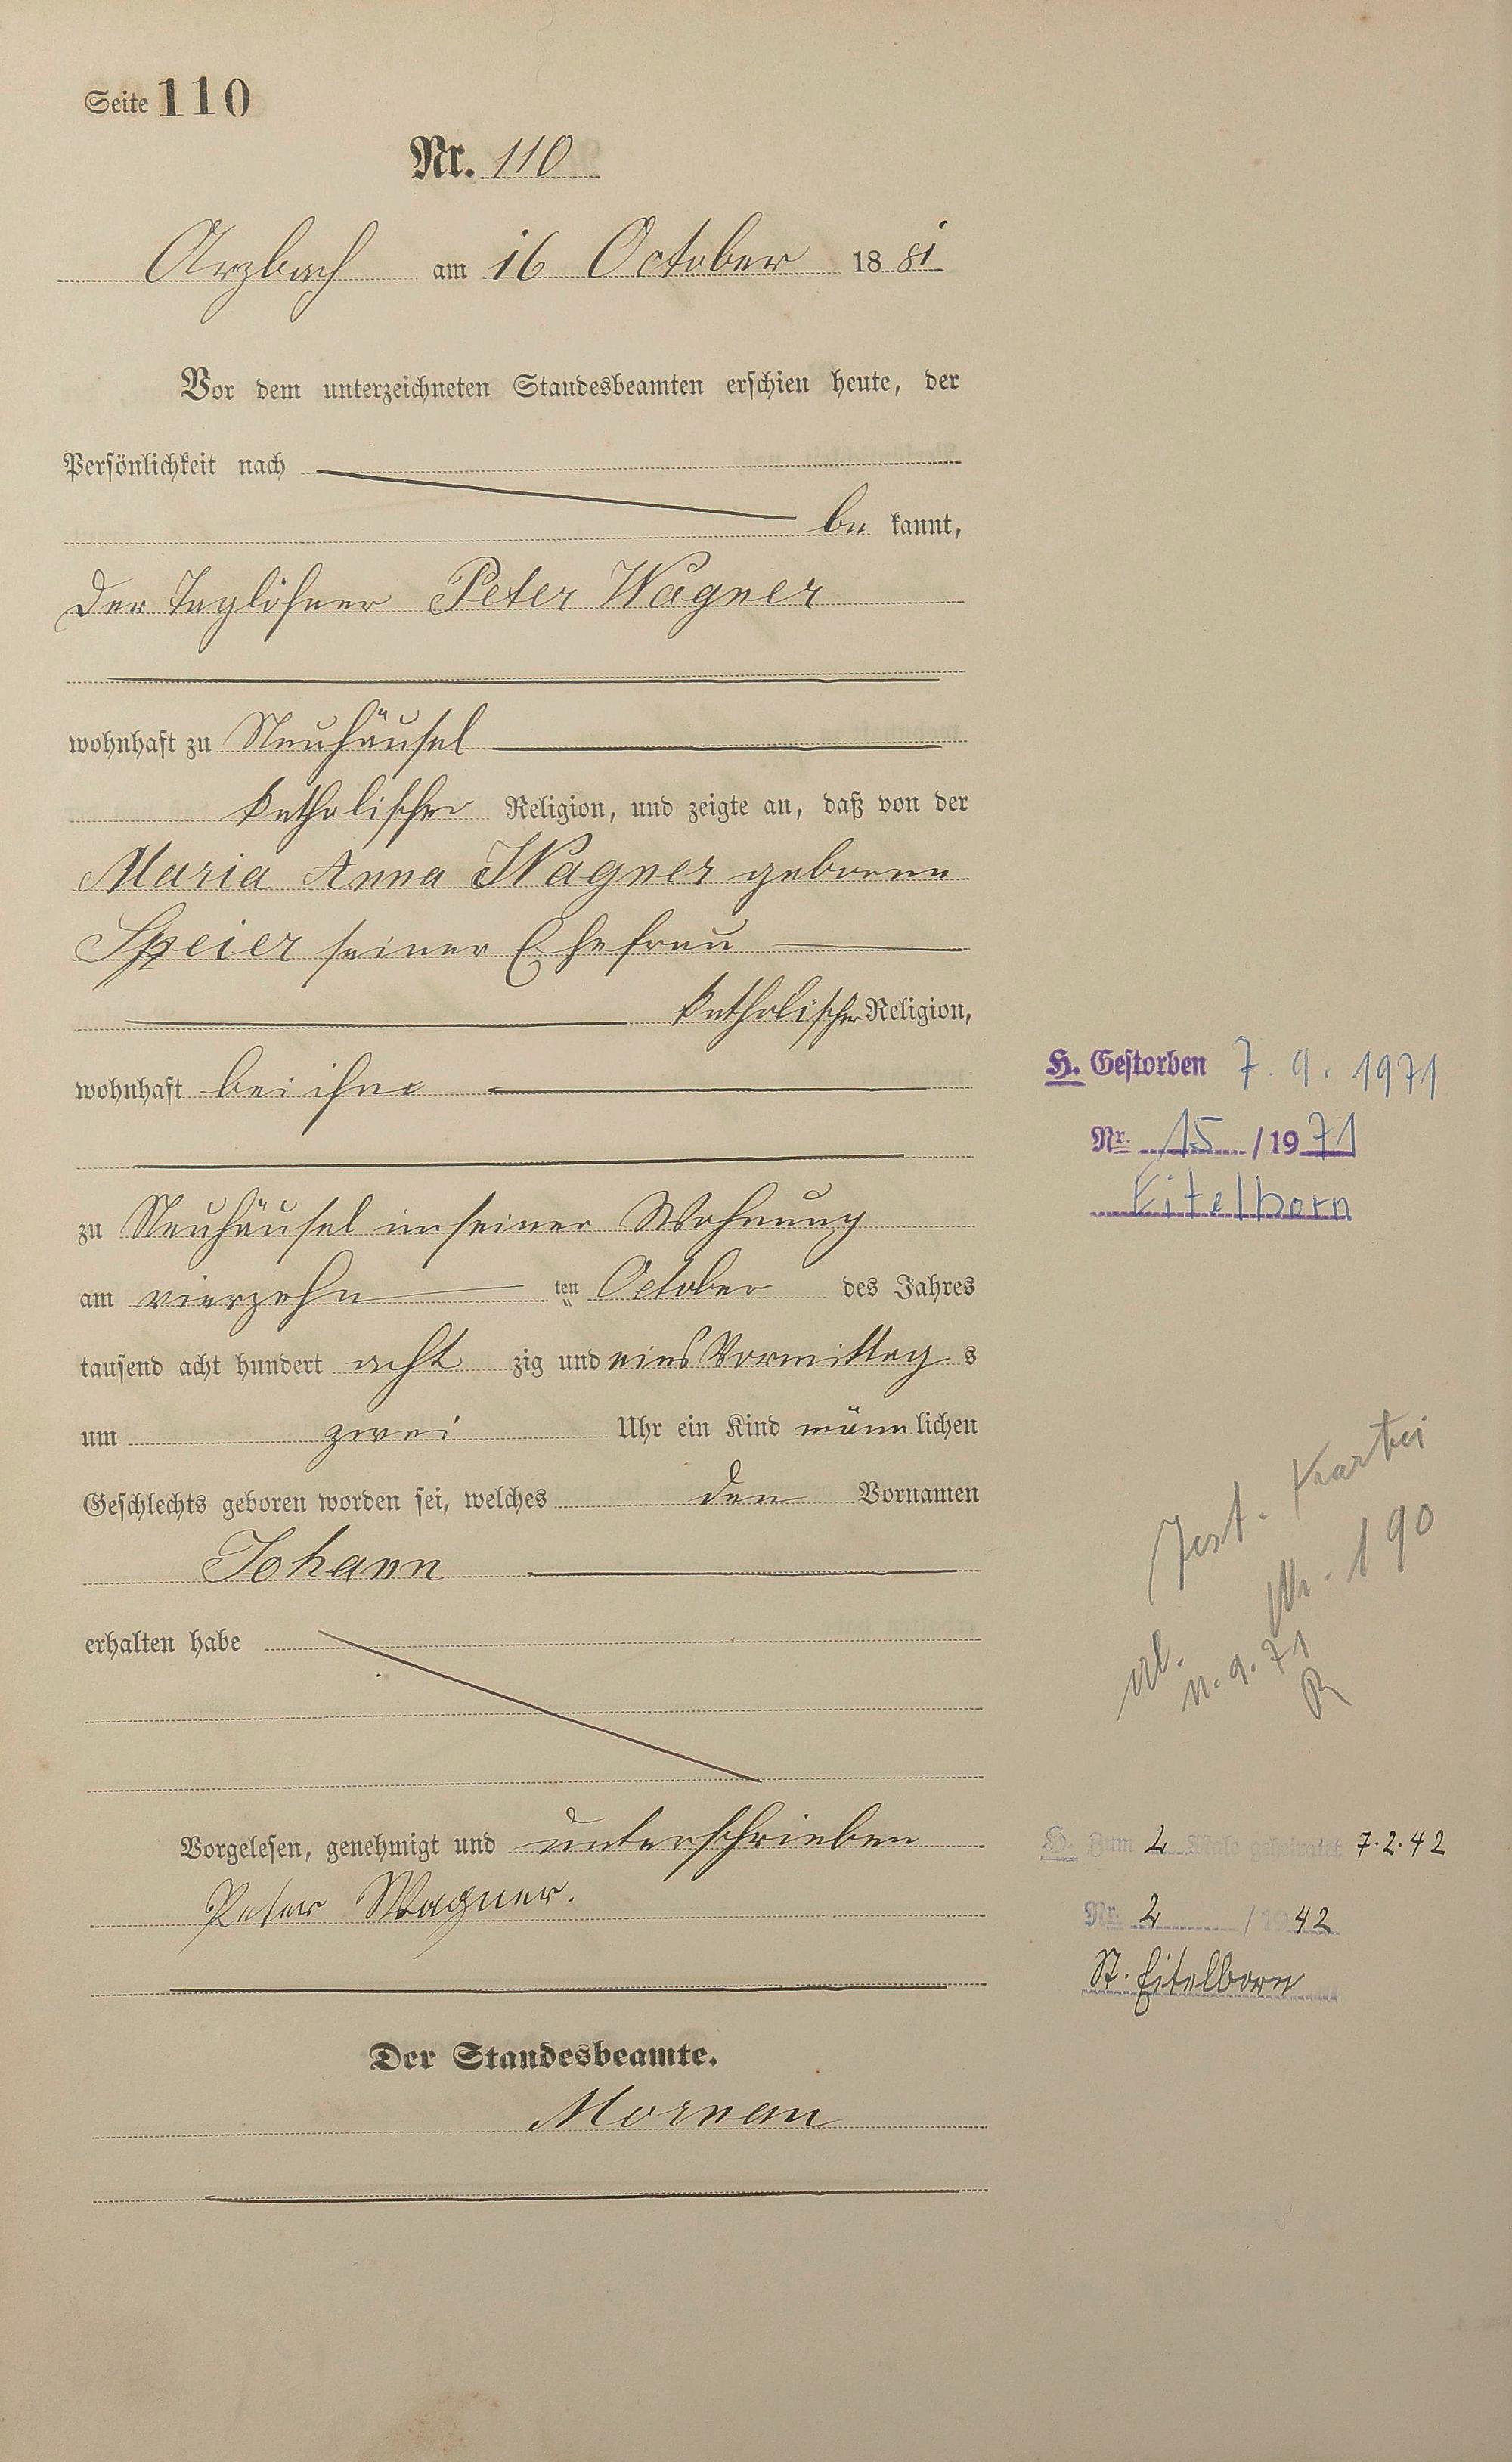 Seite 110
Nr. 110
Arzbach am 16 October 1881
Vor dem unterzeichneten Standesbeamten erschien heute, der
Persönlichkeit nach
be kannt,
der Taglöhner Peter Wagner
wohnhaft zu Neuhäusel
katholischer Religion, und zeigte an, daß von der
Maria Anna Wagner geborene
Speier seiner Ehefrau
katholischer Religion,
wohnhaft bei ihm
zu Neuhäusel in seiner Wohnung
am vierzehn ten October des Jahres
tausend acht hundert acht zig und eins Vormittag s
um zwei Uhr ein Kind männ lichen
Geschlechts geboren worden sei, welches den Vornamen
Johann
erhalten habe
Vorgelesen, genehmigt und unterschrieben
Peter Wagner.
Der Standesbeamte.
H. Gestorben 7. 9. 1971
Nr. 15 / 1971
Eitelborn
Test. Kartei
Nr. 190
11.9.71
H. Zum 2 Male geheiratet 7.2.42
Nr. 2 / 1942
St. Eitelborn